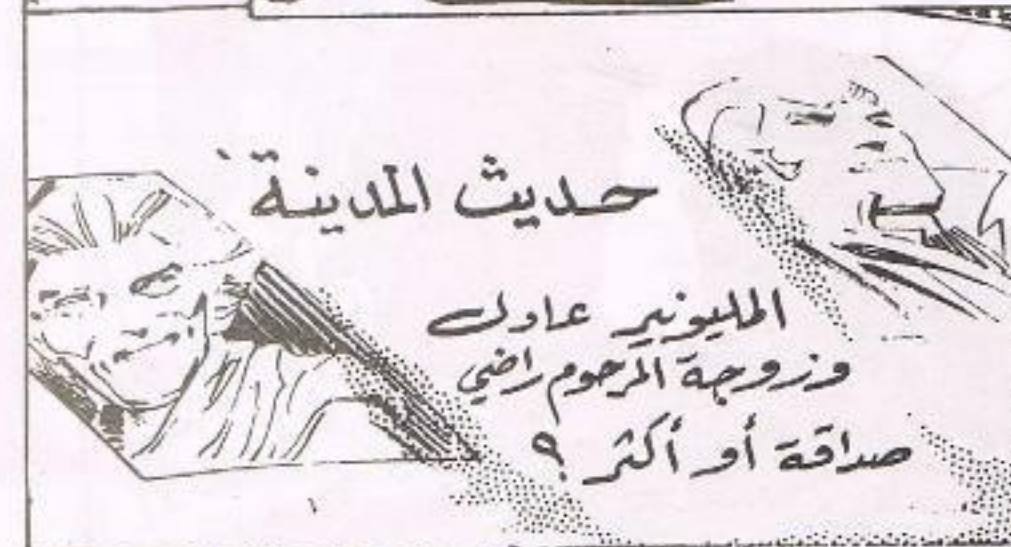 حديث المدينة
المليونير عادل
وزوجة المرحوم راضي
صداقة أو أكثر ؟